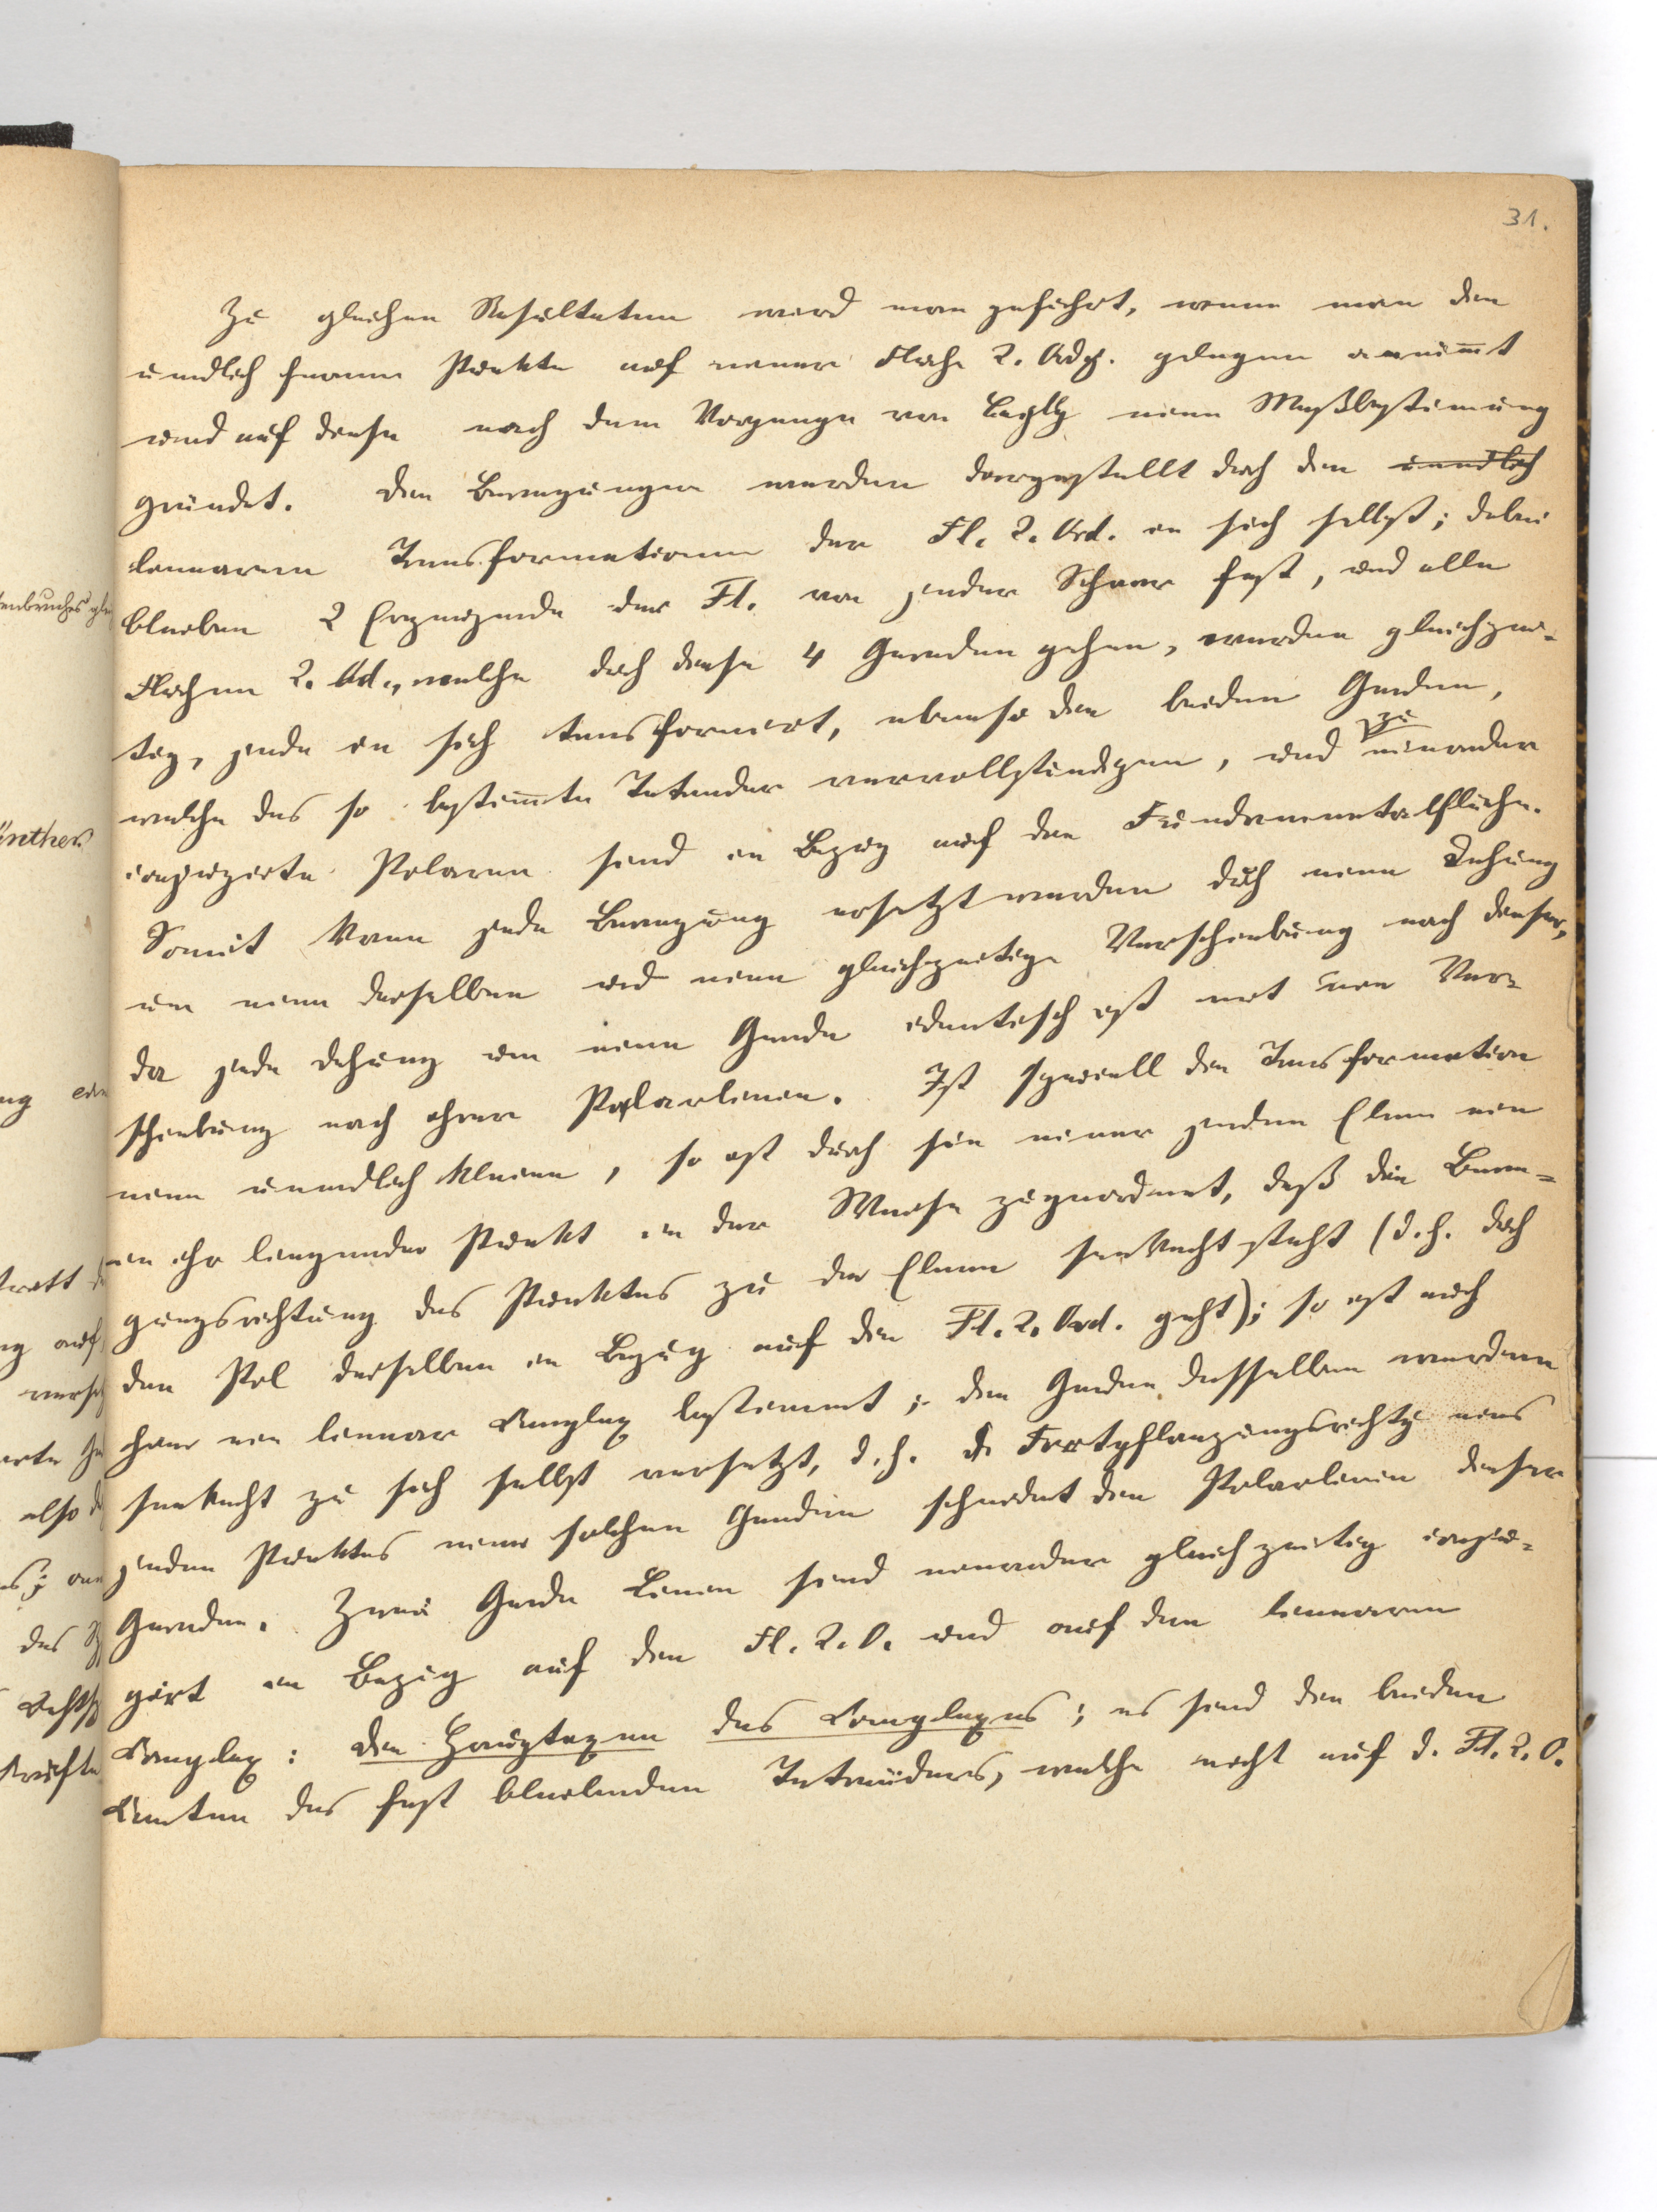 31.
Zu gleichen Resultaten wird man geführt, wenn man die
unendlich fernen Punkte auf einer Fläche 2. Ordg. gelegen annim̅t
und auf diese nach dem Vorgange von Cayley eine Maßbestimung
gründet. Die Bewegungen werden dargestellt durch die unendlich
linearen Transformationen der Fl. 2. Ord. in sich selbst; dabei
bleiben 2 Erzeugende der Fl. von jeder Schaar fest, und alle
Flächen 2. Od., welche durch diese 4 Geraden gehen, werden gleichzei-
tig, jede in sich transformiert, ebenso die beiden Geraden,
welche das so bestim̅te Tetraeder vervollständigen, und zu einander
conjugirte Polaren sind in Bezug auf die Fundamentalfläche.
Somit kann jede Bewegung ersetzt werden durch eine Drehung
um eine derselben und eine gleichzeitige Verschiebung nach dieser,
da jede Drehung um eine Gerade identisch ist mit einer Ver-
schiebung nach ihrer Polarlinien. Ist speciell die Transformation
eine unendlich kleine, so ist durch sie einer jeden Ebene ein
in ihr liegender Punkt in der Weise zugeordnet, daß die Bewe-
gungsrichtung des Punktes zu der Ebene senkrecht steht (d. h. durch
den Pol derselben in Bezug auf die Fl. 2. Ord. geht); so ist auch
hier ein linear Complex bestimmt; die Geraden desselben werden
senkrecht zu sich selbst versetzt, d. h. die Fortpflanzungsrichtg eines
jeden Punktes einer solchen Geraden schneidet die Polarlinien dieser
Geraden. Zwei Gerade Linien sind einander gleichzeitig conju-
girt in Bezug auf die Fl. 2. O. und auf den linearen
Complex: die Hauptaxen des Complexes; es sind die beiden
Kanten des fest bleibenden Tetraeders, welche nicht auf d. Fl. 2. O.